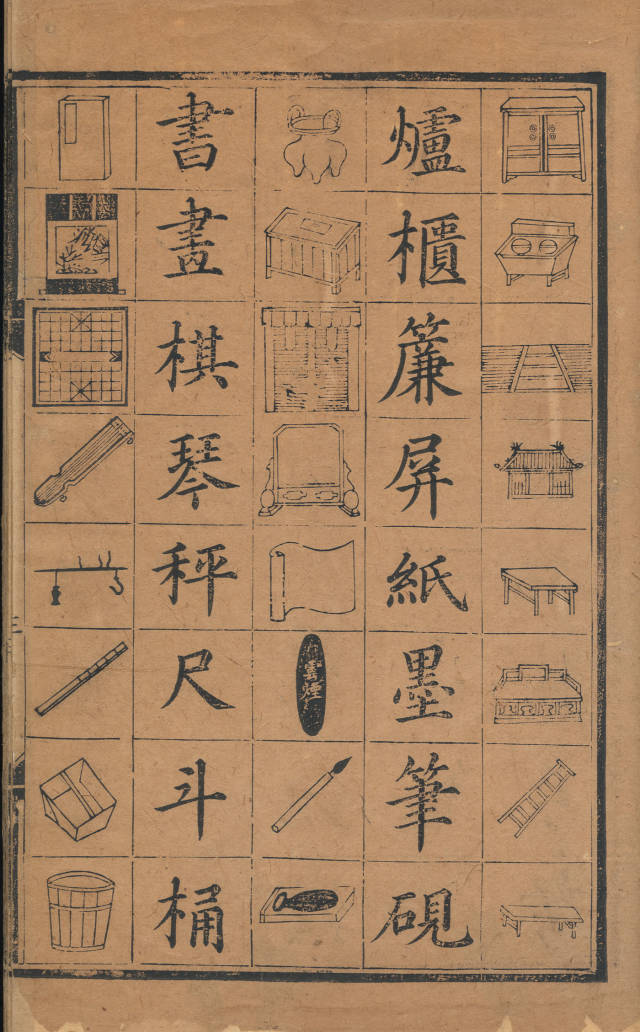 爐櫃簾屏紙墨筆硯
雲煙
書畫棋琴秤尺斗桶